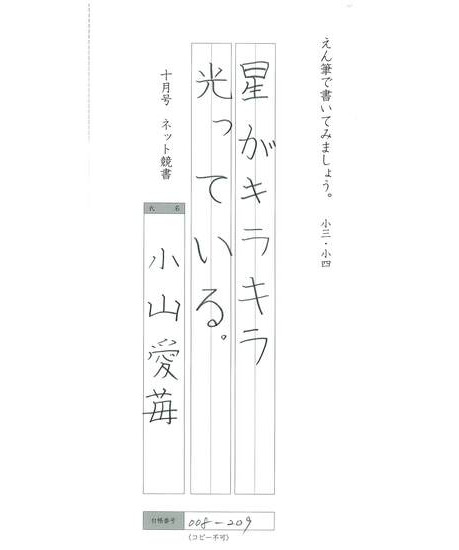 えん筆で書いてみましょう。 小三・小四
星がキラキラ
光っている。
十月号 ネット競書
氏 名
小山愛苺
台帳番号 008-209
(コピー不可)